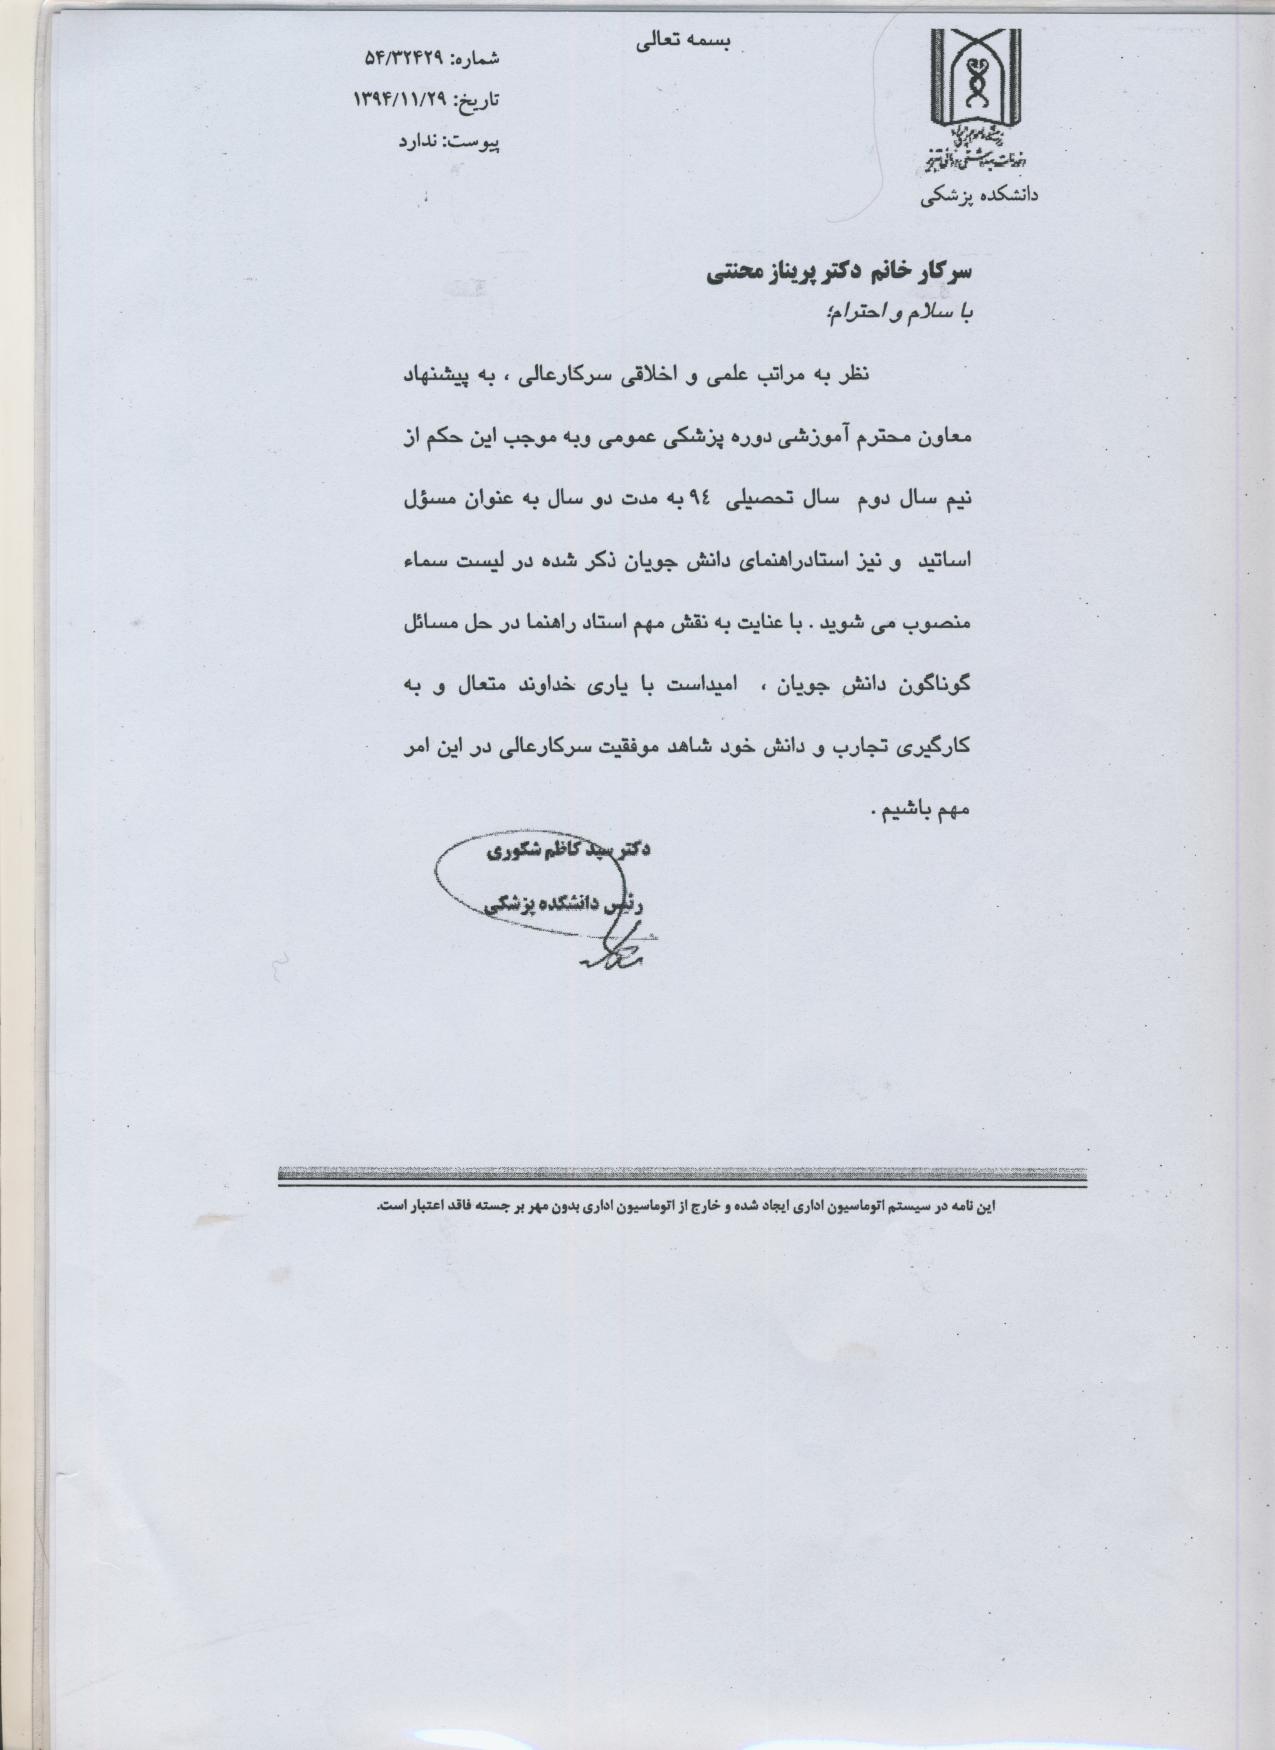 بسمه تعالی
شماره: ۵۴/۳۲۴۲۹
تاریخ: ۱۳۹۴/۱۱/۲۹
پیوست: ندارد
خدمات بهداشتی درمانی تبریز
دانشکده پزشکی
سرکار خانم دکتر پریناز محنتی
با سلام و احترام؛
نظر به مراتب علمی و اخلاقی سرکارعالی ، به پیشنهاد
معاون محترم آموزشی دوره پزشکی عمومی وبه موجب این حکم از
نیم سال دوم سال تحصیلی ٩٤ به مدت دو سال به عنوان مسؤل
اساتید و نیز استادراهنمای دانش جویان ذکر شده در لیست سماء
منصوب می شوید . با عنایت به نقش مهم استاد راهنما در حل مسائل
گوناگون دانش جویان ، امیداست با یاری خداوند متعال و به
کارگیری تجارب و دانش خود شاهد موفقیت سرکارعالی در این امر
مهم باشیم .
دکتر سید کاظم شکوری
رئیس دانشکده پزشکی
این نامه در سیستم اتوماسیون اداری ایجاد شده و خارج از اتوماسیون اداری بدون مهر بر جسته فاقد اعتبار است.